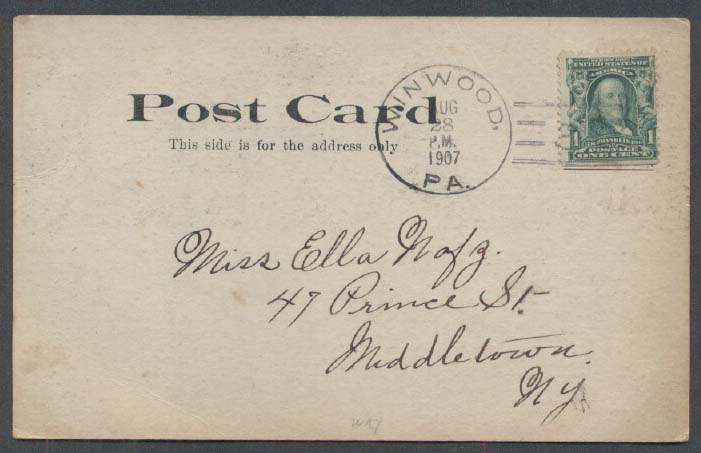 Post Card
This side is for the address only
WINWOOD,
AUG
28
P.M.
1907
PA.
SERIES 1902
UNITED STATES OF
AMERICA
1 1
POSTAGE
ONE CENT
Miss Ella Nafz.
47 Prince St.
Middletown.
Ny